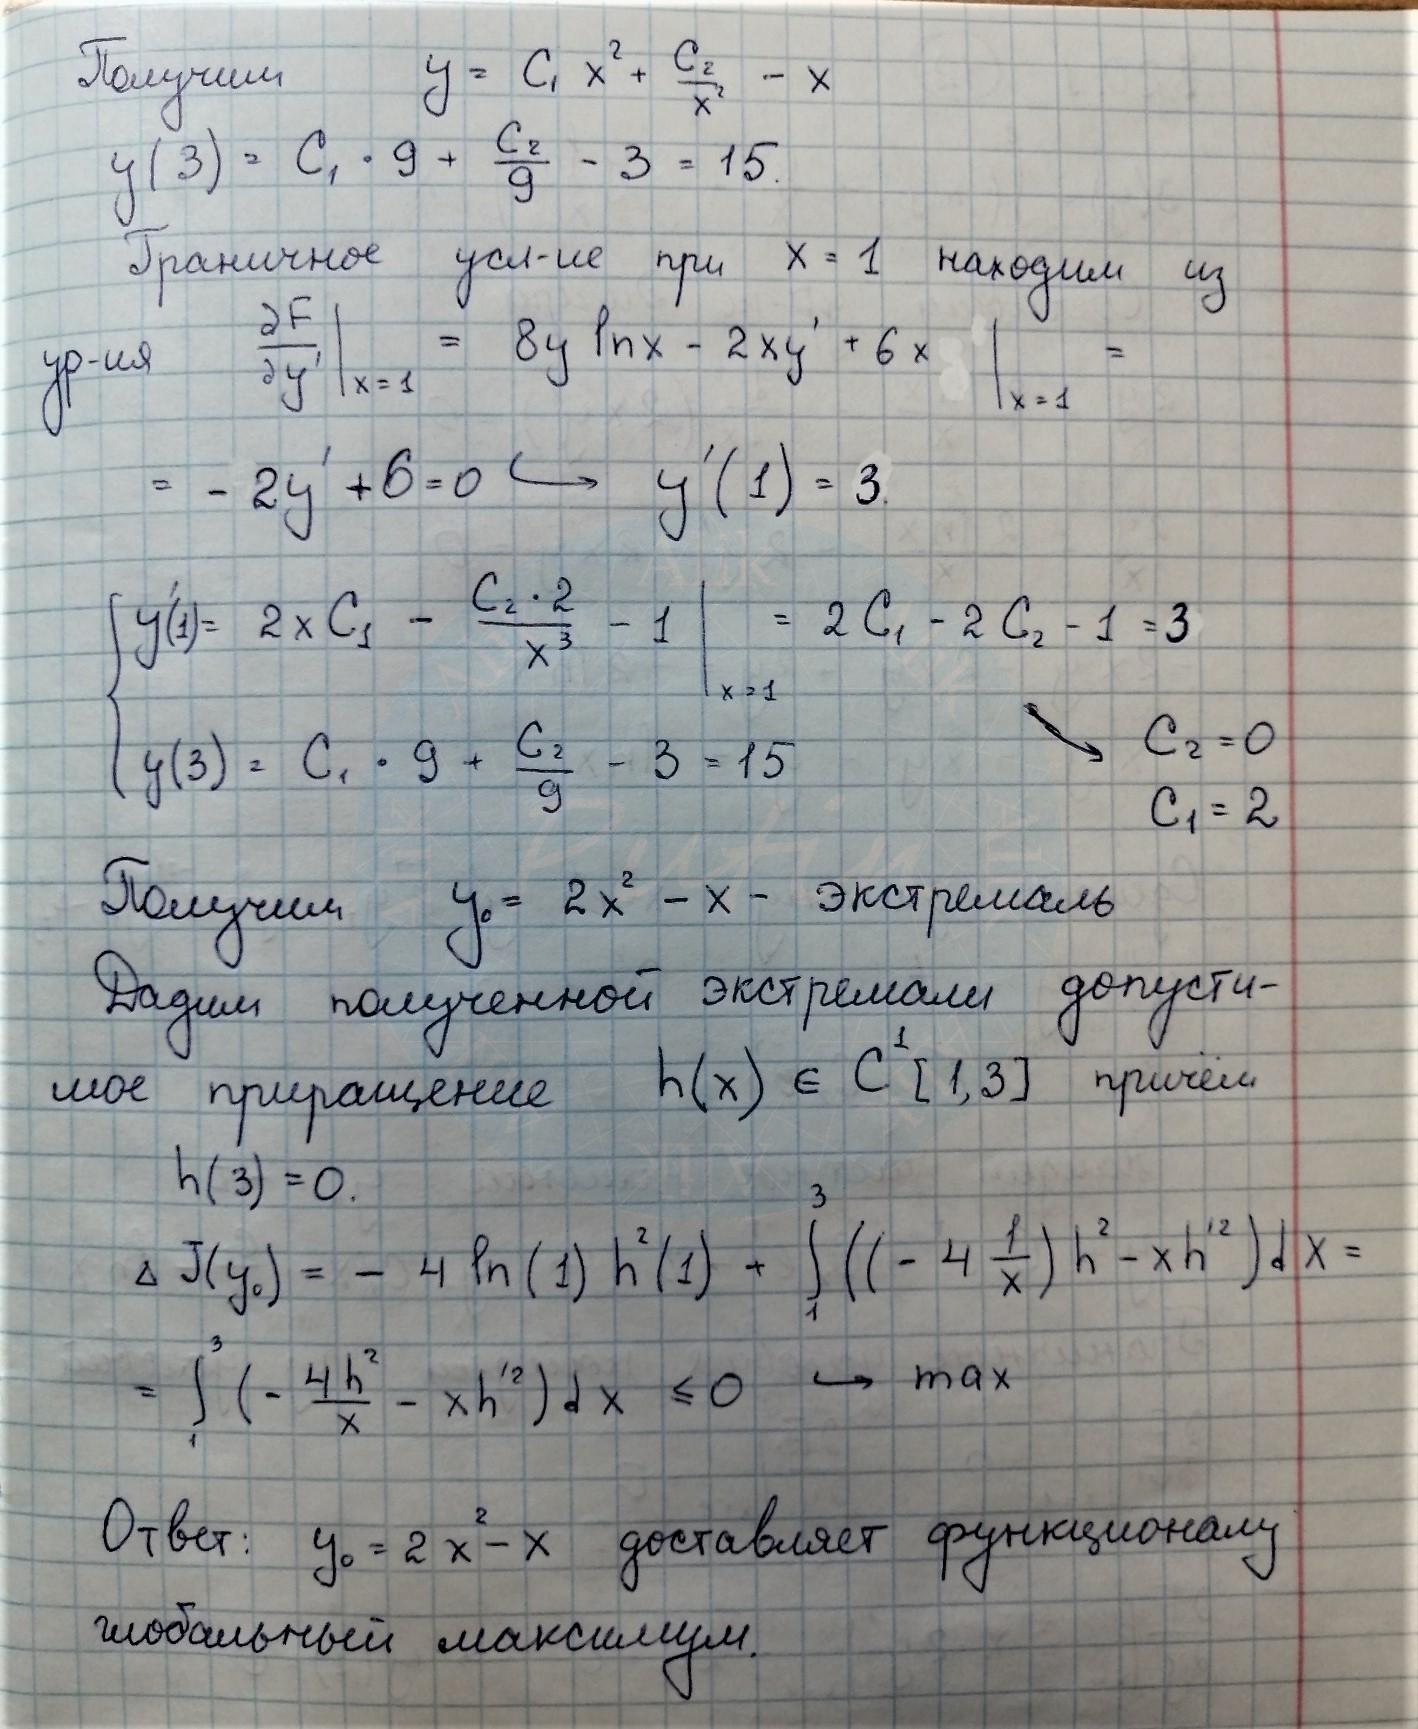 Получим y = C₁ x² + C₂/x² - x
y(3) = C₁ · 9 + C₂/9 - 3 = 15.
Граничное усл-ие при x = 1 находим из
ур-ия ∂F/∂y' |ₓ₌₁ = 8y ln x - 2xy' + 6x |ₓ₌₁ =
= - 2y' + 6 = 0 ↪ y'(1) = 3.
y'(1) = 2x C₁ - C₂·2/x³ - 1 |ₓ₌₁ = 2C₁ - 2C₂ - 1 = 3
y(3) = C₁ · 9 + C₂/9 - 3 = 15
↘ C₂ = 0
C₁ = 2
Получим y₀ = 2x² - x - экстремаль
Дадим полученной экстремали допусти-
мое приращение h(x) ∈ C¹[1,3] причём
h(3) = 0.
Δ J(y₀) = - 4 ln(1) h²(1) + ∫₁³ ((- 4 1/x) h² - xh'²) dx =
= ∫₁³ (- 4h²/x - xh'²) dx ≤ 0 ↪ max
Ответ: y₀ = 2x² - x доставляет функционалу
глобальный максимум.